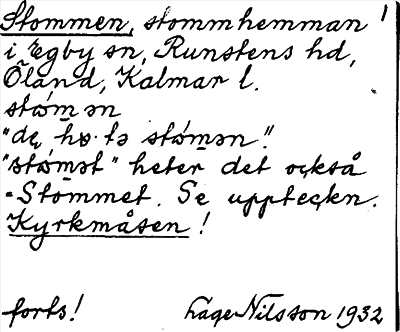 Stommen, stommhemman 1
i Egby sn, Runstens hd,
Öland, Kalmar l.
stώmən
"dε hɵ·tə stώmən".
"stώmət" heter det också
= Stommet. Se uppteckn.
Kyrkmåsen!
forts! Åge Nilsson 1932